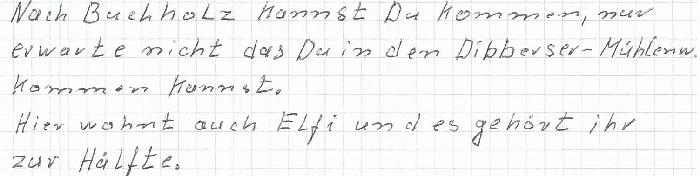 Nach Buchholz kannst Du kommen, nur
erwarte nicht das Du in den Dibberser-Mühlenw.
kommen kannst.
Hier wohnt auch Elfi und es gehört ihr
zur Hälfte.